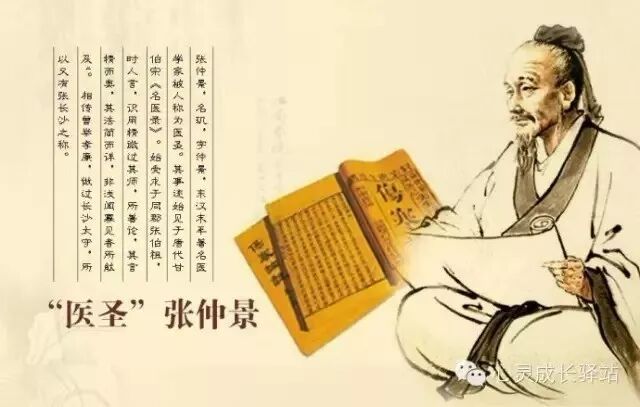 张仲景，名玑，字仲景，东汉末年著名医
学家被人称为医圣。其事迹始见于唐代甘
伯宗《名医录》。始受术于同郡张伯祖，
时人言，识用精微过其师，所著论，其言
精而奥，其法简而详，非浅闻寡见者所能
及”。相传曾举孝廉，做过长沙太守，所
以又有张长沙之称。
“医圣”张仲景
心灵成长驿站